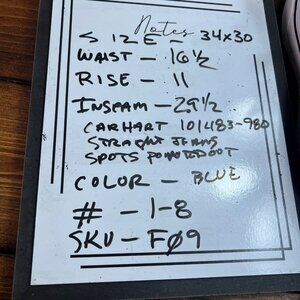 Notes
SIZE - 34x30
WAIST - 16 1/2
RISE - 11
INSEAM - 29 1/2
CARHART 101483-980
STRAIGHT JEANS
SPOTS
COLOR - BLUE
# - 1-8
SKU - FØ9